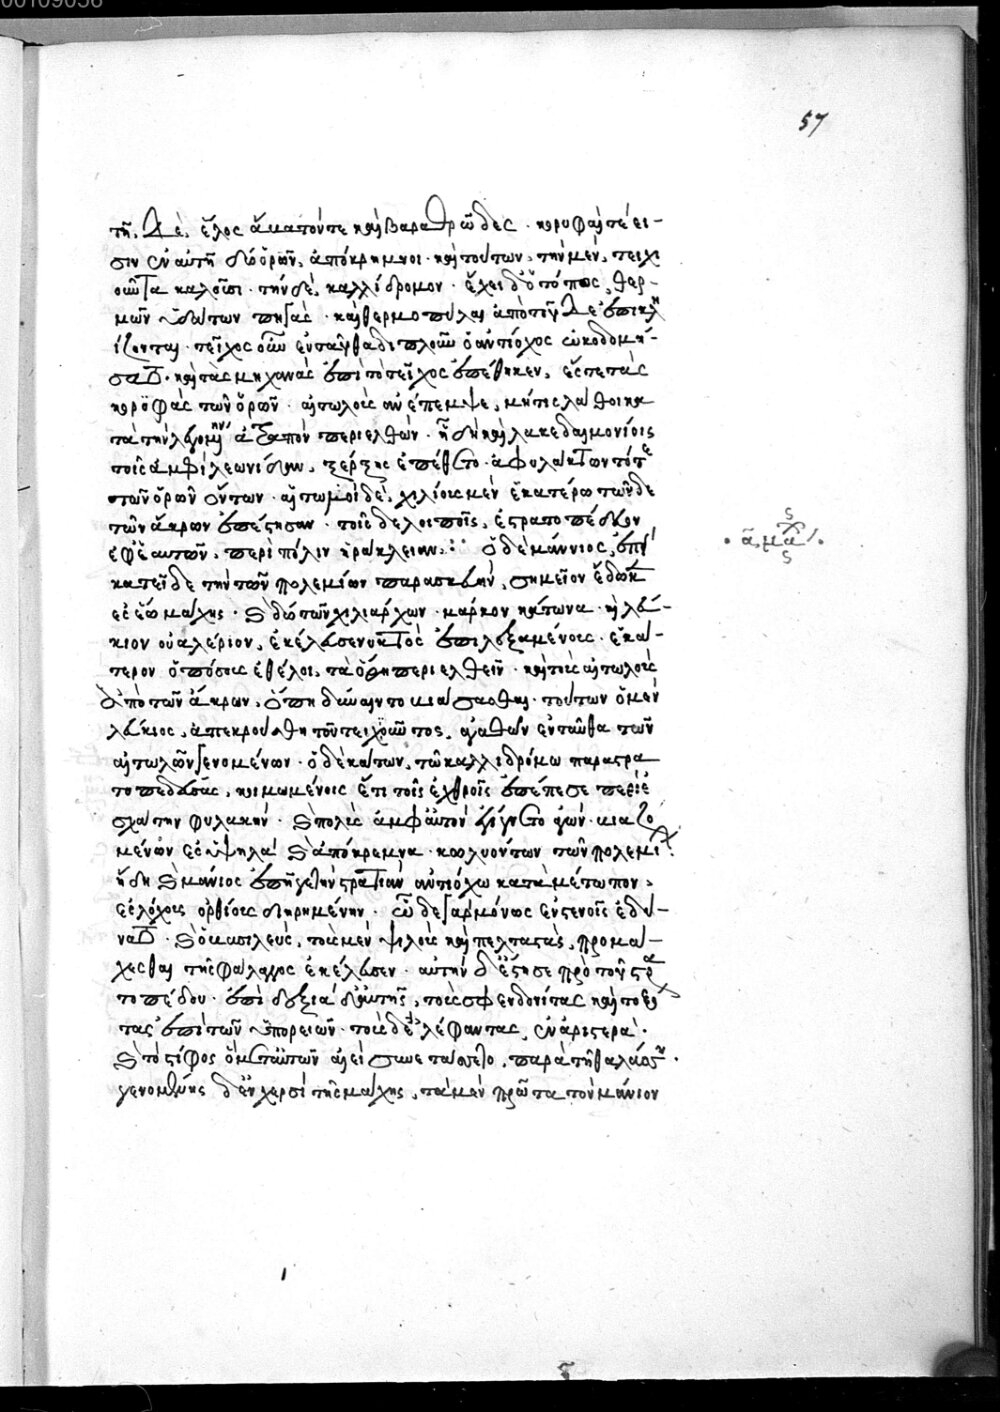 57
τῆ, δὲ, ἕλος ἄματόν τε καὶ βαραθρῶδες · κορυφαί τέ εἰ-
σιν ἐν αὐτῆ δύο ὀρῶν, ἀπόκρημνοι · καὶ τούτων, τὴν μὲν, τειχι
οῦντα καλοῦσι · τὴν δὲ, καλλίδρομον · ἔχει δὲ ὁ τόπος, θερ-
μῶν ὑδάτων πηγὰς · καὶ θερμοπύλαι ἀπὸ τοῦδε ἐπικλη
ίζονται · τεῖχος οὖν ἐνταῦθα διπλοῦν ὁ ἀντίοχος ὠκοδομή-
σατο · καὶ τὰς μηχανὰς ἐπὶ τὸ τεῖχος ἐπέθηκεν, ἔς τε τὰς
κορυφὰς τῶν ὀρῶν · αἰτωλοὺς ἀνέπεμψε, μή τις λάθοι κα
τὰ τὴν λεγομένην ἀτραπὸν περιελθὼν · ἧ δὴ καὶ λακεδαιμονίοις
τοῖς ἀμφὶ λεωνίδην, ξέρξης ἐπέθετο · ἀφυλάκτων τότε
τῶν ὀρῶν ὄντων · αἰτωλοὶ δὲ, χιλίους μὲν ἑκατέρω τῶνδε
τῶν ἄκρων ἐπέστησαν · τοῖς δὲ λοιποῖς, ἐστρατοπέδευον
ἐφ' ἑαυτῶν, περὶ πόλιν ἡράκλειαν ⁘ ὁ δὲ μάννιος, ἐπεὶ
κατεῖδε τὴν τῶν πολεμίων παρασκευὴν, σημεῖον ἔδωκεν
ἐς ἕω μάχης · καὶ δύο τῶν χιλιάρχων · μάρκον κάτωνα · καὶ λεύ-
κιον οὐαλέριον, ἐκέλευσε νυκτὸς ἐπιλεξαμένους · ἑκά-
τερον ὁπόσους ἐθέλοι, τὰ ὄρη περιελθεῖν · καὶ τοὺς αἰτωλοὺς
ἀπὸ τῶν ἄκρων, ὅπη δύναιντο βιάσασθαι · τούτων ὁ μὲν
λεύκιος, ἀπεκρούσθη τοῦ τειχιοῦντος, ἀγαθῶν ἐνταῦθα τῶν
αἰτωλῶν γενομένων · ὁ δὲ κάτων, τῶ καλλιδρόμω παραστρα
τοπεδεύσας, κοιμωμένοις ἔτι τοῖς ἐχθροῖς ἐπέπεσε περὶ ἐ
σχάτην φυλακήν · καὶ πολὺς ἀμφ' αὐτὸν ἐγίγνετο ἀγών · βιαζο
μένων ἐς ὑψηλὰ καὶ ἀπόκρημνα · κωλυόντων τῶν πολεμί
ἤδη καὶ μάνιος ἐπῆγε τὴν στρατιὰν ἀντιόχω κατὰ μέτωπον,
ἐς λόχους ὀρθίους διηρημένην · ὧδε γὰρ μόνως ἐν στενοῖς ἐδύ-
νατο · καὶ ὁ βασιλεὺς, τοὺς μὲν ψιλοὺς καὶ πελταστὰς, προμά-
χεσθαι τῆς φάλαγγος ἐκέλευσεν · αὐτὴν δὲ ἔστησε πρὸ τοῦ στρα
τοπέδου · ἐπὶ δεξιὰ δ' αὐτῆς, τοὺς σφενδονήτας καὶ τοξό
τας ἐπὶ τῶν ὑπορειῶν · τοὺς δὲ ἐλέφαντας, ἐν ἀριστερᾶ ·
καὶ τὸ στίφος ὃ μετ' αὐτῶν αἰεὶ συνετάσσετο, παρὰ τῆ θαλάσση ·
γενομένης δ' ἐν χερσὶ τῆς μάχης, τὰ μὲν πρῶτα τὸν μάνιον